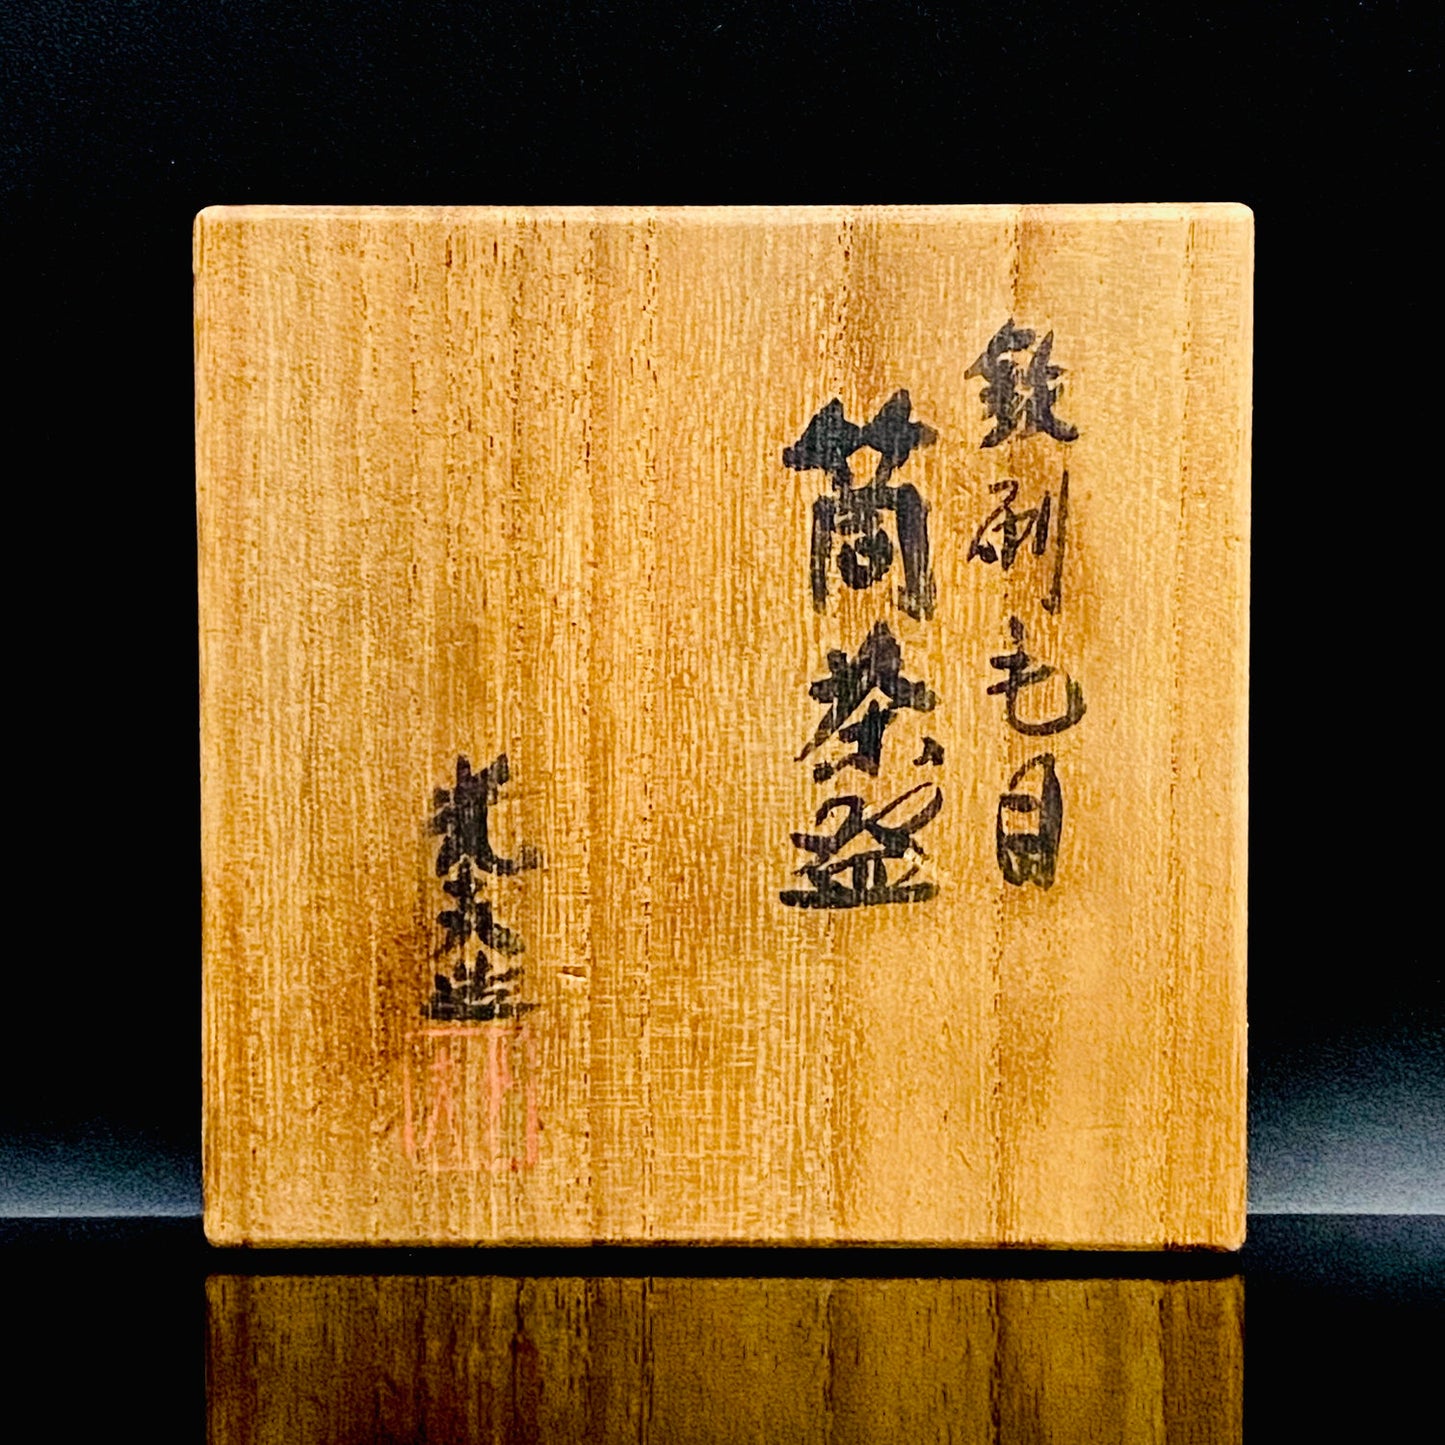 鉄刷毛目
筒茶盌
造